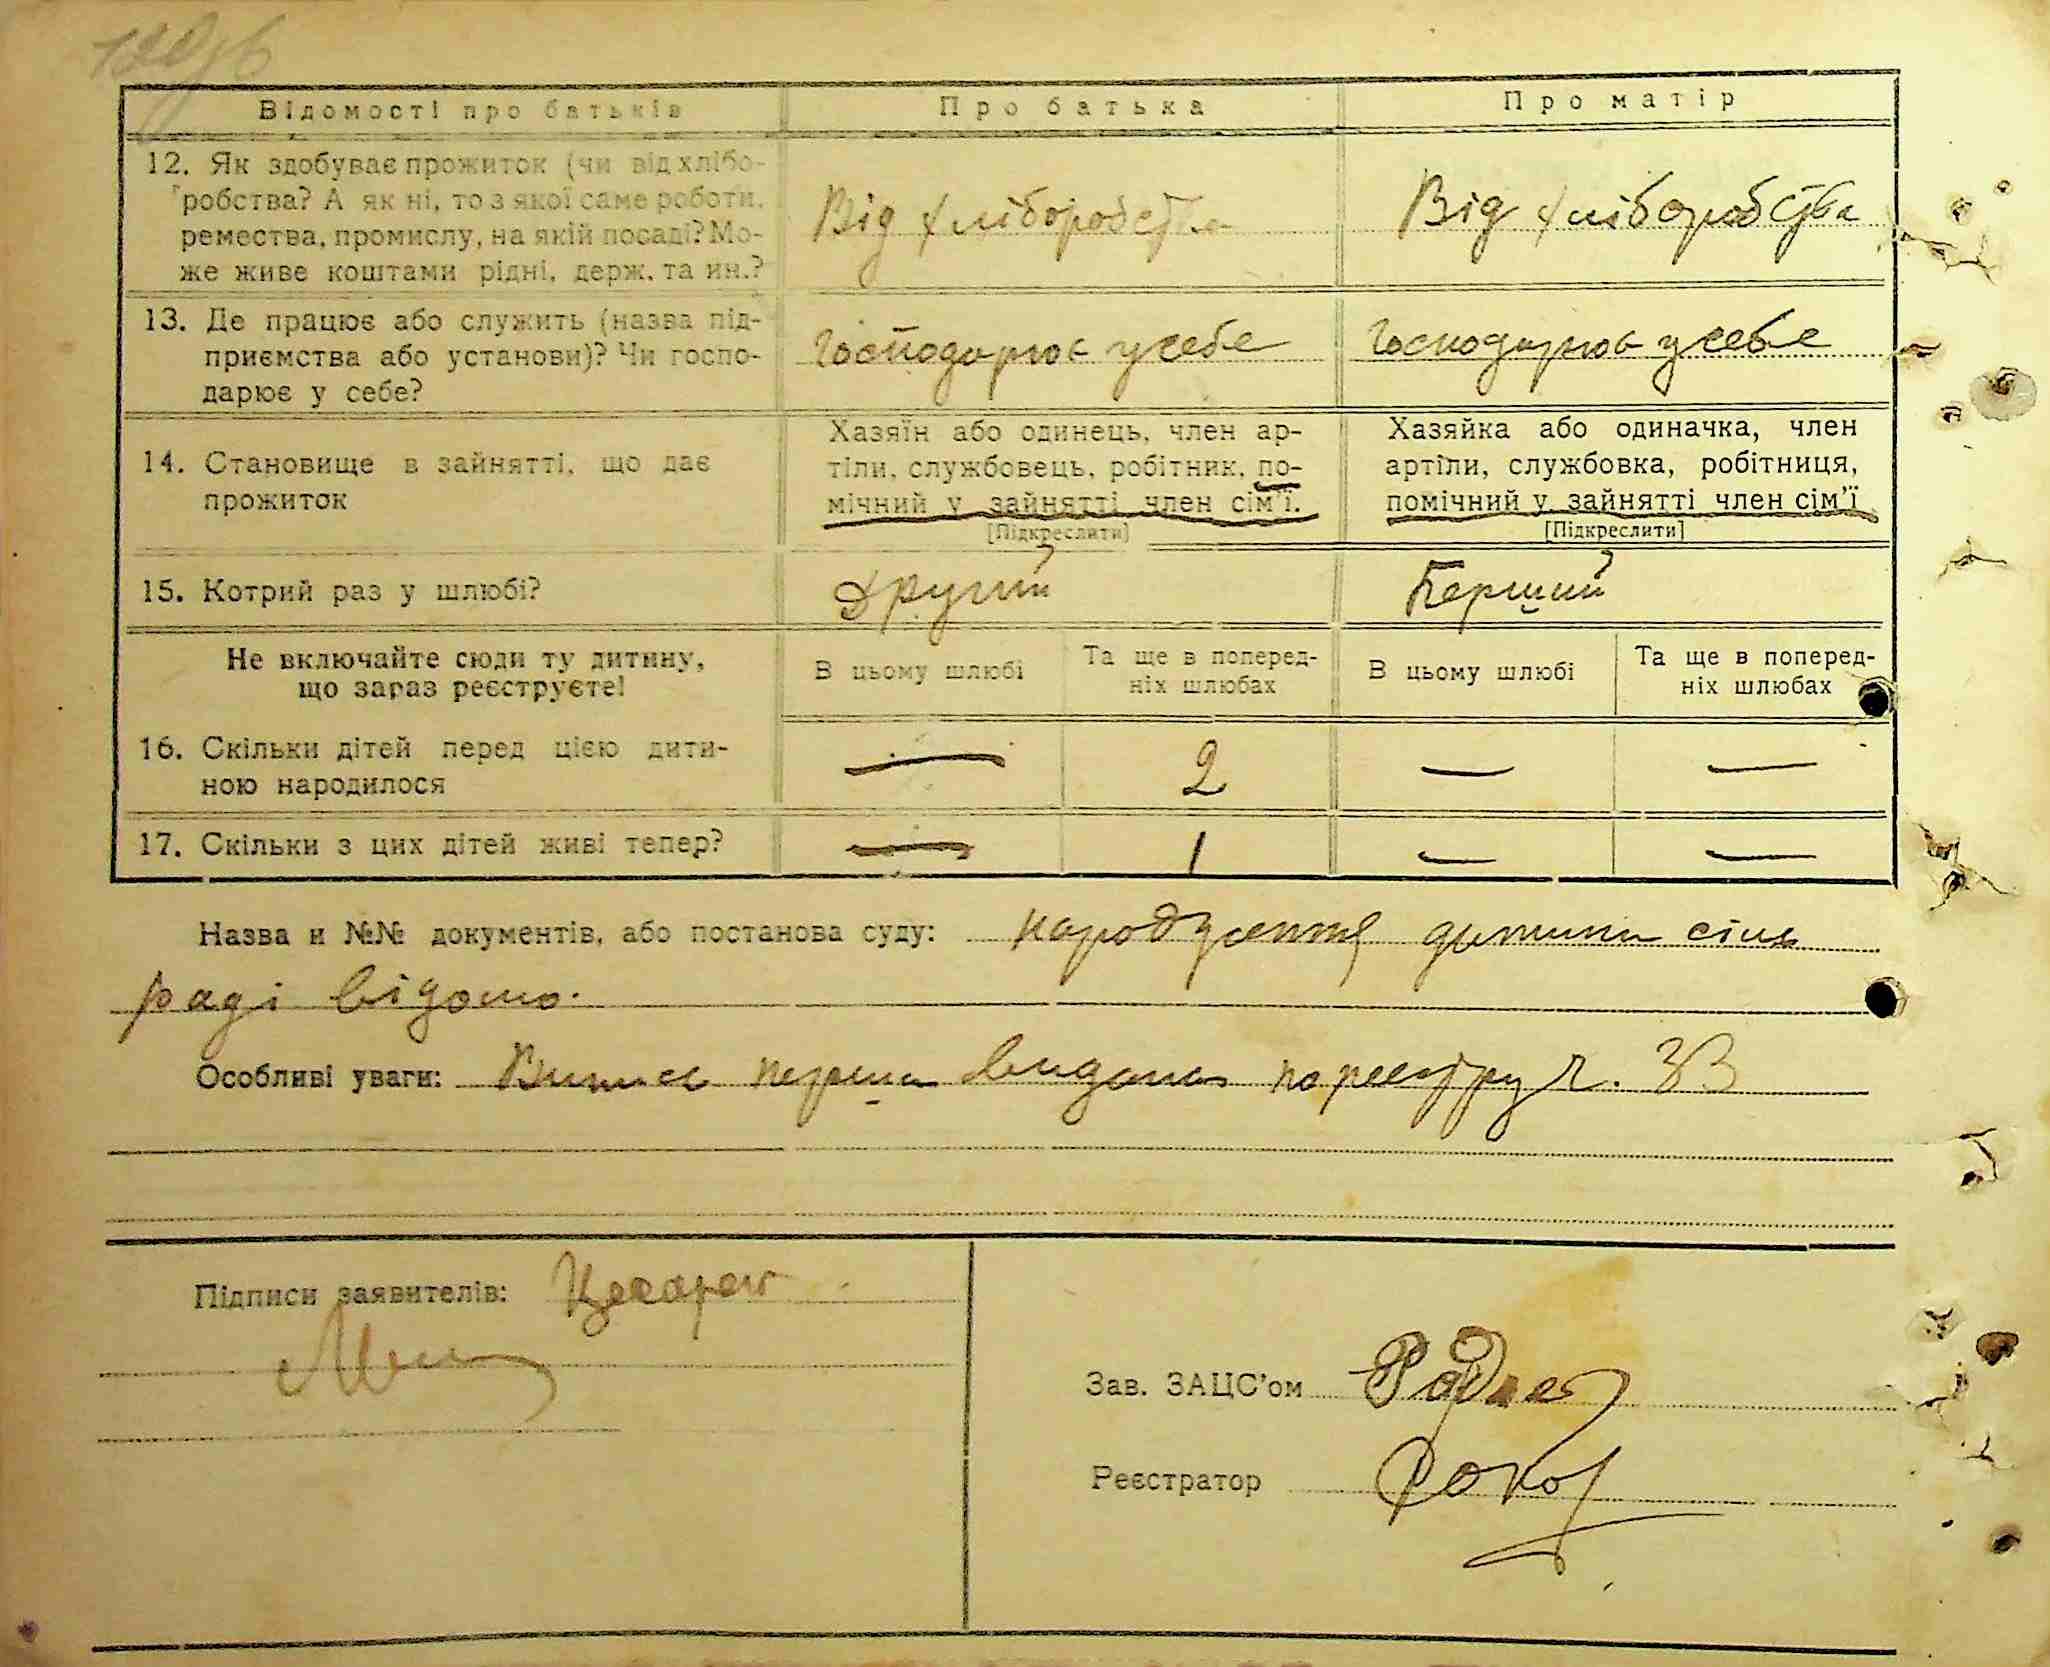 Відомості про батьків
Про батька
Про матір
12. Як здобуває прожиток (чи від хлібо-
робства? А як ні, то з якої саме роботи,
ремества, промислу, на якій посаді? Мо-
же живе коштами рідні, держ. та ин.?
Від хліборобства
Від хліборобства
13. Де працює або служить (назва під-
приємства або установи)? Чи госпо-
дарює у себе?
Господарює у себе
Господарює у себе
14. Становище в зайнятті, що дає
прожиток
Хазяїн або одинець, член ар-
тіли, службовець, робітник, по-
мічний у зайнятті член сім'ї.
[Підкреслити]
Хазяйка або одиначка, член
артіли, службовка, робітниця,
помічний у зайнятті член сім'ї
[Підкреслити]
15. Котрий раз у шлюбі?
Другий
Перший
Не включайте сюди ту дитину,
що зараз реєструєте!
В цьому шлюбі
Та ще в поперед-
ніх шлюбах
В цьому шлюбі
Та ще в поперед-
ніх шлюбах
16. Скільки дітей перед цією дити-
ною народилося
— 2 — —
17. Скільки з цих дітей живі тепер?
— 1 — —
Назва и №№ документів, або постанова суду: народження дитини сіль
раді відомо.
Особливі уваги: Випись перша видана по реєстру ч. 33
Підписи заявителів:
Зав. ЗАЦС'ом
Реєстратор